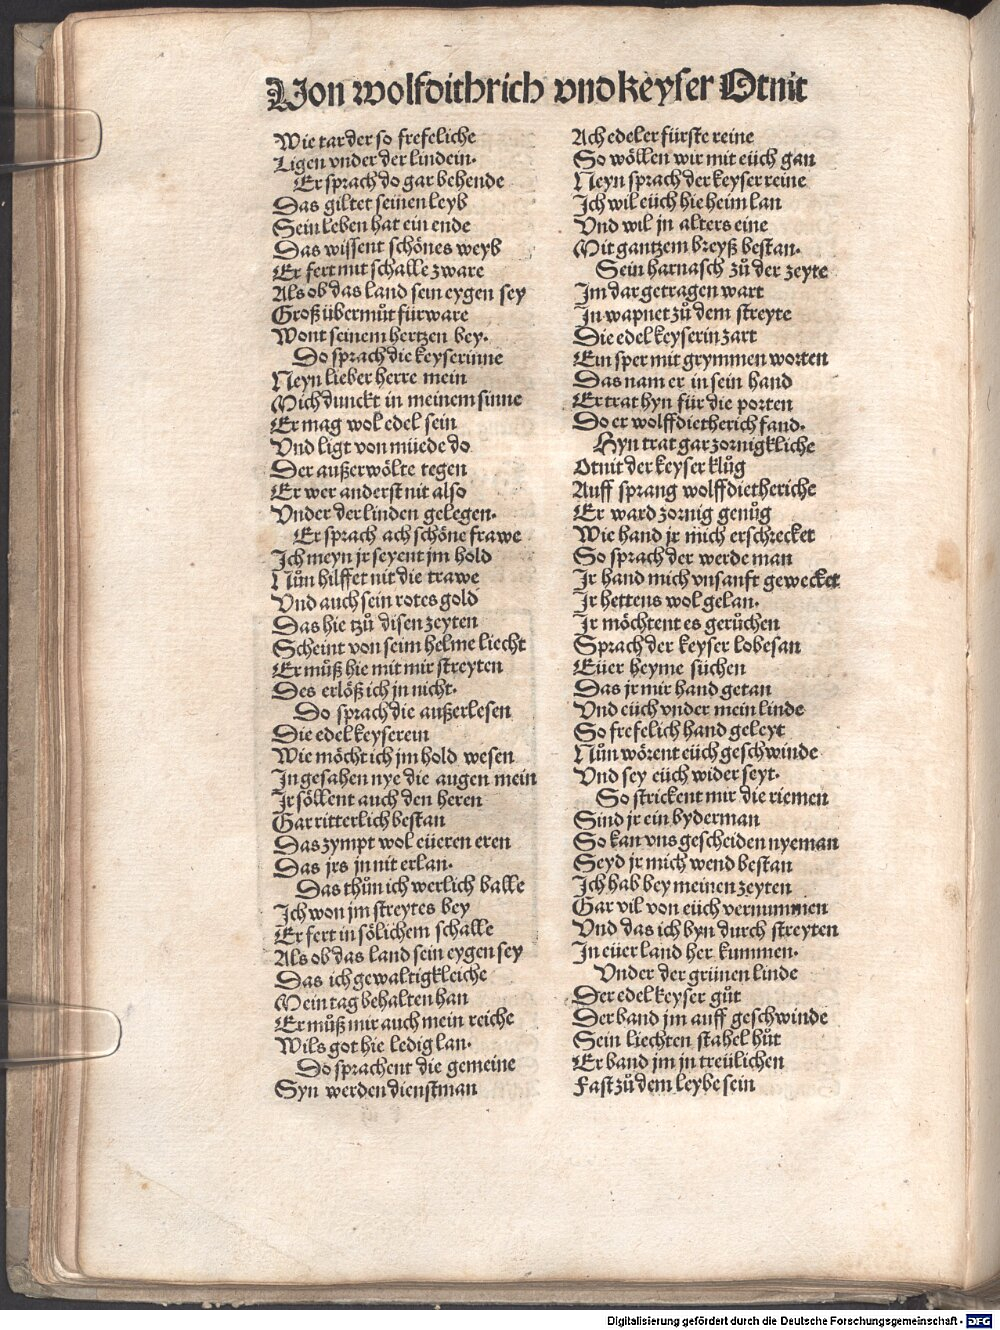 Von wolfdithrich vnd keyser Otnit
Wie tar der so frefeliche
Ligen vnder der lindein.
Er sprach do gar behende
Das giltet seinen leyb
Sein leben hat ein ende
Das wissent schönes weyb
Er fert mit schalle zware
Als ob das land sein eygen sey
Groß übermůt fürware
Wont seinem hertzen bey.
Do sprach die keyserinne
Neyn lieber herre mein
Mich dunckt in meinem sinne
Er mag wol edel sein
Vnd ligt von müede do
Der außerwölte tegen
Er wer anderst nit also
Vnder der linden gelegen.
Er sprach ach schöne frawe
Ich meyn jr seyent jm hold
Nůn hilffet nit die trawe
Vnd auch sein rotes gold
Das hie tzů disen zeyten
Scheint von seim helme liecht
Er můß hie mit mir streyten
Des erlöß ich jn nicht.
Do sprach die außerlesen
Die edel keyserein
Wie möcht ich jm hold wesen
In gesahen nye die augen mein
Ir söllent auch den heren
Gar ritterlich bestan
Das zympt wol eüeren eren
Das jrs jn nit erlan.
Das thůn ich werlich balle
Ich won jm streytes bey
Er fert in sölichem schalle
Als ob das land sein eygen sey
Das ich gewaltigkleiche
Mein tag behalten han
Er můß mir auch mein reiche
Wils got hie ledig lan.
Do sprachent die gemeine
Syn werden dienstman
Ach edeler fürste reine
So wöllen wir mit eüch gan
Neyn sprach der keyser reine
Ich wil eüch hie heim lan
Vnd wil jn alters eine
Mit gantzem breyß bestan.
Sein harnasch zů der zeyte
Im dar getragen wart
In wapnet zů dem streyte
Die edel keyserin zart
Ein sper mit grymmen worten
Das nam er in sein hand
Er trat hyn für die porten
Do er wolffdietherich fand.
Hyn trat gar zornigkliche
Otnit der keyser klůg
Auff sprang wolffdietheriche
Er ward zornig genůg
Wie hand jr mich erschrecket
So sprach der werde man
Ir hand mich vnsanft gewecket
Ir hettens wol gelan.
Ir möchtent es gerůchen
Sprach der keyser lobesan
Eüer heyme sůchen
Das jr mir hand getan
Vnd eüch vnder mein linde
So frefelich hand geleyt
Nůn wörent eüch geschwinde
Vnd sey eüch wider seyt.
So strickent mir die riemen
Sind jr ein byderman
So kan vns gescheiden nyeman
Seyd jr mich wend bestan
Ich hab bey meinen zeyten
Gar vil von eüch vernummen
Vnd das ich byn durch streyten
In eüer land her kummen.
Vnder der grünen linde
Der edel keyser gůt
Der band jm auff geschwinde
Sein liechten stahel hůt
Er band jm jn treülichen
Fast zů dem leybe sein
Digitalisierung gefördert durch die Deutsche Forschungsgemeinschaft - DFG